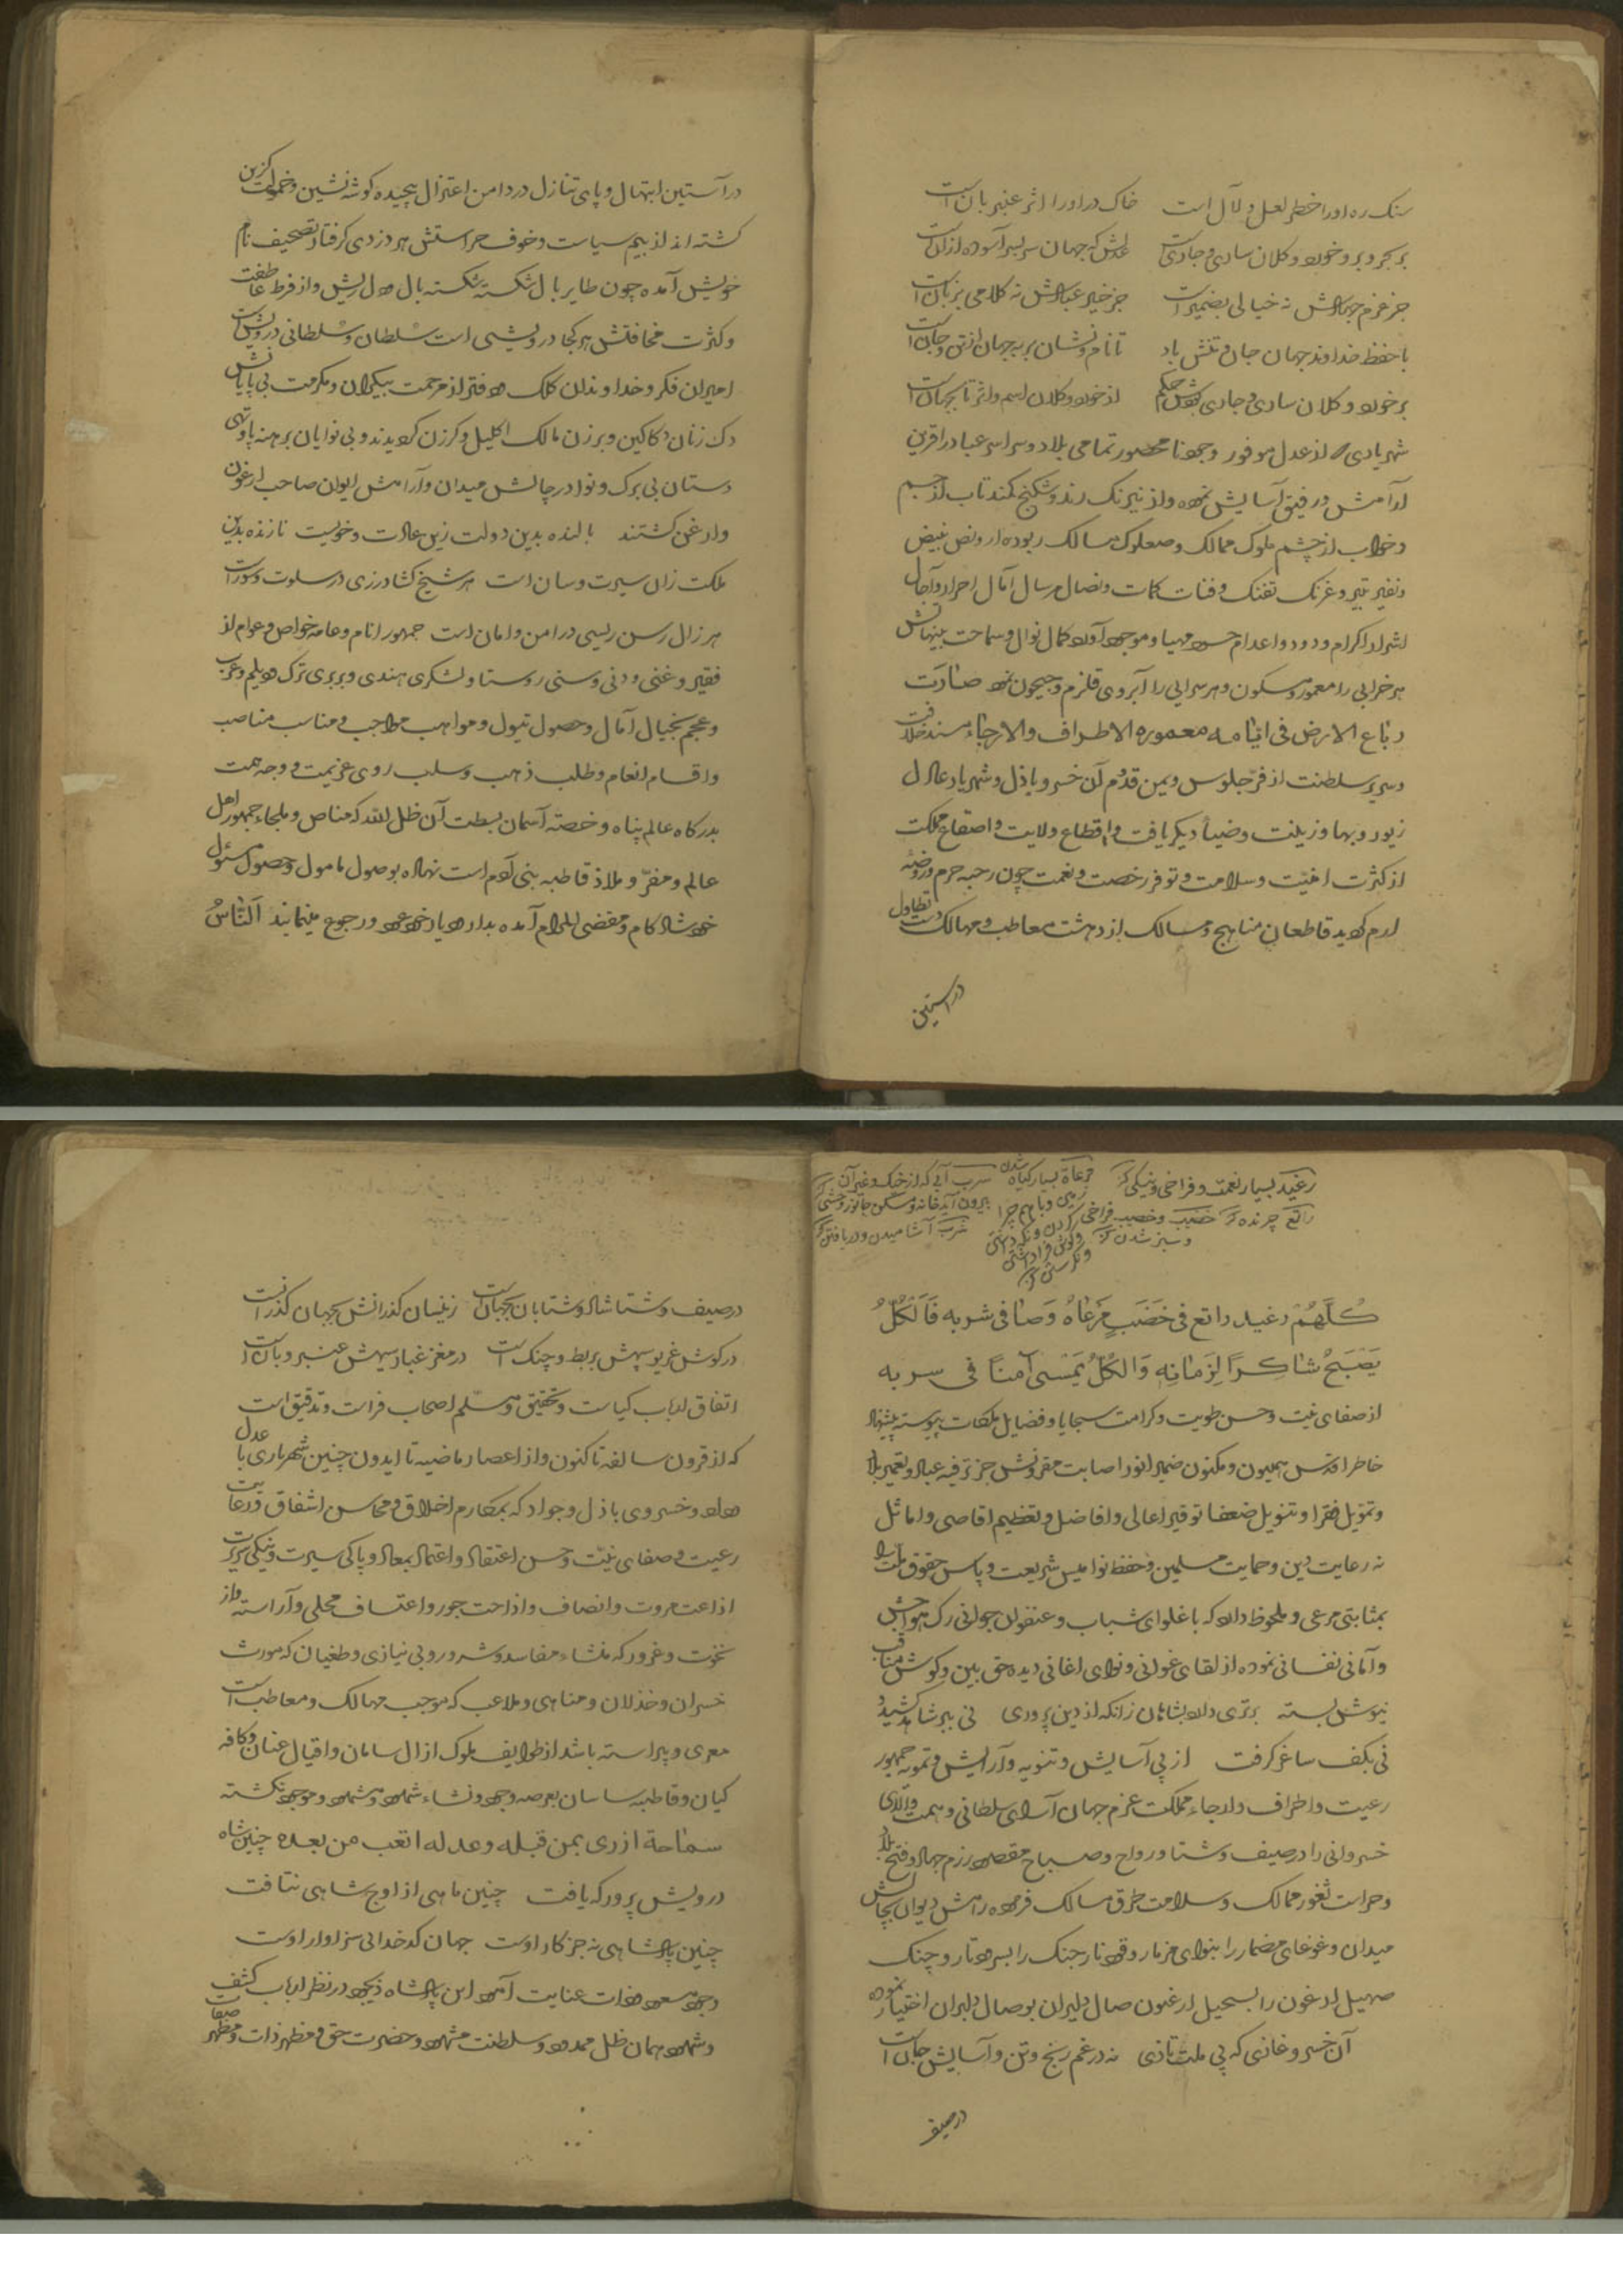 سنک ره او را خطر لعل و لآل است خاک در او را اثر عنبر بان است
بر بحر و بر و خورد و کلان ساری و جاریست عدلش که جهان سربسر آسوده ازانست
جز عزم جهادش نه خیالی بضمیر است جز خیر عبادش نه کلامی بزبان است
با حفظ خداوند جهان جان و تنش باد تا نام و نشان بر بجهان از تن و جان است
بر خورد و کلان ساری و جاری بودش حکم از خورد و کلان اسم و اثر تا بجهان است
شهریاری که از عدل موفور و جود نامحصور تمامی بلاد و سراسر عباد را قرین
آرامش و رفیق آسایش نموده و از نیرنک رند و شکنج کمند تاب از جسم
و خواب از چشم ملوک ممالک و صعلوک مسالک ربوده از ونض نبیض
و نفیر تیر و غرنک تفنک و فنات کمات و نصال مرسال آمال احرار و آجال
اشرار را کرام و دود و اعدام حسود مهیا و موجود آورده کمال نوال و سماحت بینهایتش
هر خرابی را معمور و مسکون و هر سرابی را آبروی قلزم و جیحون نمود صارت
رباع الارض فی ایامه معموره الاطراف والارجاء مسند خلافت
و سریر سلطنت از فرّ جلوس و یمن قدوم آن خسرو باذل و شهریار عادل
زیور و بها و زینت و ضیاء دیکر یافت و اقطاع ولایت و اصقاع مملکت
از کثرت امنیّت و سلامت و توفر رخصت و نعمت چون رحبه حرم و روضه
ارم کردید قاطعان مناهج و مسالک از دهشت معاطب و مهالک دست تطاول
در آستین
در آستین ابتهال و پای تنازل در دامن اعتزال پیچیده کوشه نشین و خمولت کزین
کشته اند از بیم سیاست و خوف حراستش هر دزدی کرفتار تصحیف نام
خویش آمده چون طایر بال شکسته شکسته بال و دل ریش و از فرط عاطفت
و کثرت مخافتش هر کجا درویشی است سلطان و سلطانی درویش است
امیران فکر و خداوندان کلک و دفتر از مرحمت بیکران و مکرمت بی پایانش
دک زنان دکاکین و برزن مالک اکلیل و کرزن کردیدند و بی نوایان برهنه پا و تهی
دستان بی برک و نوا در چالش میدان و آرامش ایوان صاحب ارغون
و ارغن کشتند بالنده بدین دولت زین عادت و خویست نازنده بدین
ملکت زان سیرت و سان است هر شیخ کشاورزی در سلوت و سور است
هر زال رسن ریسی در امن و امان است جمهور انام و عامه خواص و عوام از
فقیر و غنی و دنی و سنی روستا و لشکری هندی و بربری ترک و دیلم و عرب
و عجم بخیال آمال و حصول تیول و مواهب مواجب و مناسب مناصب
و اقسام انعام و طلب ذهب و سلب روی عزیمت و وجه همت
بدرکاه عالم پناه و خصته آسمان بسطت آن ظل الله که مناص و ملجاء جمهور اهل
عالم و مفرّ و ملاذ قاطبه بنی آدم است نهاده بوصول مامول و حصول مسئول
خوشدل و شاد کام و مقضی المرام آمده بدار و دیار خود عود و رجوع مینمایند اَلنّاسُ
رغید بسیار نعمت و فراخی و نیکی
راتع چرنده خضب و خصیب فراخی
و سبز شدن
مرعاة بسیار کیاه شدن
زمین و با هم چرا
کردن و نکه داشتن
و کوش فرا داشتن
و نکریستن
سرب آبی که از خیک و غیر آن
بیرون آید و خانه و مسکن جانور وحشی
شرب آشامیدن و دریافتن
كُلُّهُمْ رغید راتع فی خَضَبٍ مَرْعَاهُ وَصَافی شربه فَالْکُلُّ
یَصْبَحُ شاکِرًا لِزَمانِهِ وَالکُلُّ یَمْسی آمنًا فی سربه
از صفای نیت و حسن طویت و کرامت سجایا و فضایل ملکات پیوسته پیشنهاد
خاطر اقدس همیون و مکنون ضمیر انور اصابت مقرونش جز ترفیه عباد و تعمیر بلاد
و تمویل فقرا و تنویل ضعفا توقیر اعالی و افاضل و تعظیم اقاصی و اماثل
نه رعایت دین و حمایت مسلمین و حفظ نوامیس شریعت و پاس حقوق ملت را
بمثابتی مرعی و ملحوظ دارد که با غلوای شباب و عنفوان جوانی ترک هواجس
و آمانی نفسانی نموده از لقای غوانی و نوای اغانی دیده حق بین و کوش مناقب
نیوش بسته برتری دارد بشاهان زانکه از دین پروری نی ببر شاهد کشید و
نی بکف ساغر کرفت از پی آسایش و تنویه و آرایش و تمویه جمهور
رعیت و اطراف و ارجاء مملکت عزم جهان آرای سلطانی و همت والای
خسروانی را در صیف و شتا و رواح و صباح مقصور رزم جهاد و فتح بلاد
و حراست ثغور ممالک و سلامت طرق مسالک فرموده رامش دیوان بچالش
میدان و غوغای مضمار را بنوای مزمار و قود نار جنک را بسرود تار و چنک
صهیل ارغون را بسحیل ارغنون صال دلیران بوصال دلبران اختیار نموده
آن خسرو غازی که پی ملت تازی نه در غم رنج و تن و آسایش جان است
در صیف
در صیف و شتا شاد و شتابان بجهان است زینسان کذرانش بجهان کذرانست
در کوش غریو سپهش بربط و چنک است در مغز غبار سپهش عنبر و بان است
اتفاق ارباب کیاست و تحقیق و مسلم اصحاب فراست و تدقیق است
که از قرون سالفه تا کنون و از اعصار ماضیه تا ایدون چنین شهریاری با عدل
و داد و خسروی باذل و جواد که بمکارم اخلاق و محاسن اشفاق و رعایت
رعیت و صفای نیّت و حسن اعتقاد و اعتماد بمعاد و پاکی سیرت و نیکی سریرت
اذاعت مروت و انصاف و اذاحت جور و اعتساف محلی و آراسته و از
نخوت و غرور که منشاء مفاسد و شرور و بی نیازی و طغیان که مورث
خسران و خذلان و مناهی و ملاعب که موجب مهالک و معاطب است
معری و پیراسته باشد از طوایف ملوک از آل سامان و اقیال عنان و کافه
کیان و قاطبه ساسان بعرصه وجود و نشاء شهود مشهود و موجود نکشته
سماحة ازری بمن قبله و عدله اتعب من بعده چنین شاه
درویش پرور که یافت چنین ماهی از اوج شاهی نتافت
چنین پادشاهی نه جز کار اوست جهان کدخدائی سزاوار اوست
وجود مسعود و ذات عنایت آمود این پادشاه ذیجود در نظر ارباب کشف
و شهود همان ظل ممدود و سلطنت مشهود حضرت حق و مظهر ذات و مظهر صفات